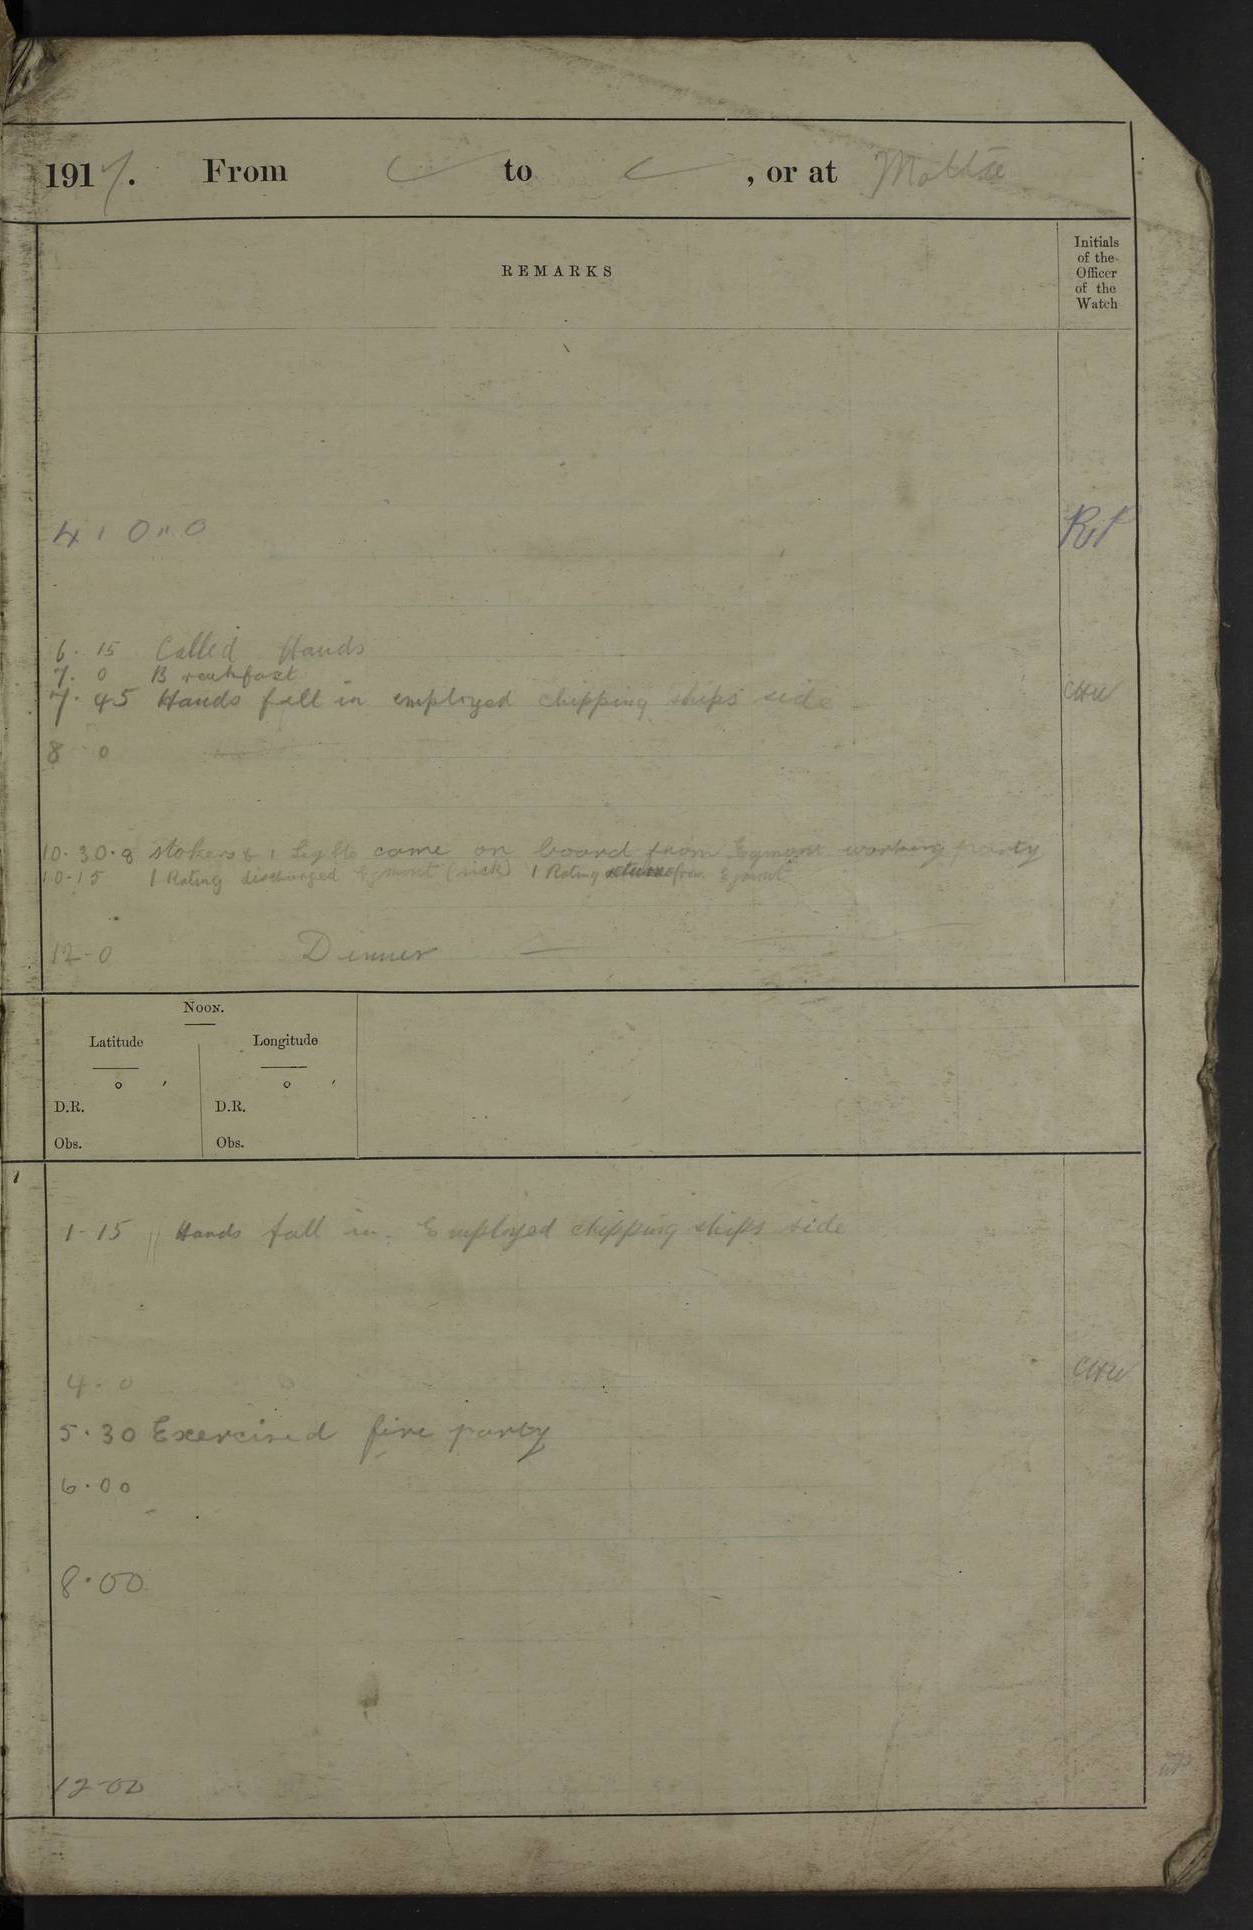 1917. From to , or at Malta
REMARKS
Initials
of the
Officer
of the
Watch
4 . 0 " 0 RP
6. 15 Called Hands
7. 0 Breakfast
7. 45 Hands fell in employed chipping ships side CHW
8 0
10. 30. 8 stokers & 1 came on board from Egmont working party
10-15 1 Rating discharged Egmont (sick) 1 Rating from Egmont
12-0 Dinner
NOON.
Latitude Longitude
° ′ ° ′
D.R. D.R.
Obs. Obs.
1-15 Hands fall in. Employed chipping ships side
4-0 CHW
5.30 Exercised fire party
6.00
8.00
12-00